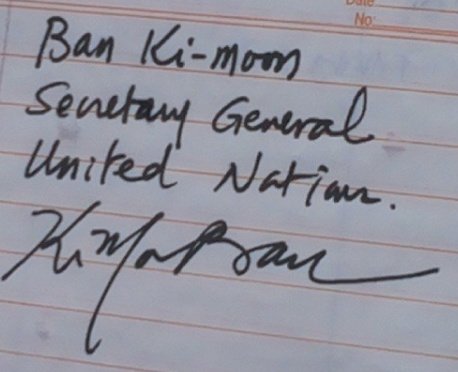 Date
No:
Ban Ki-moon
Secretary General
United Nations.
Ki Moon Ban